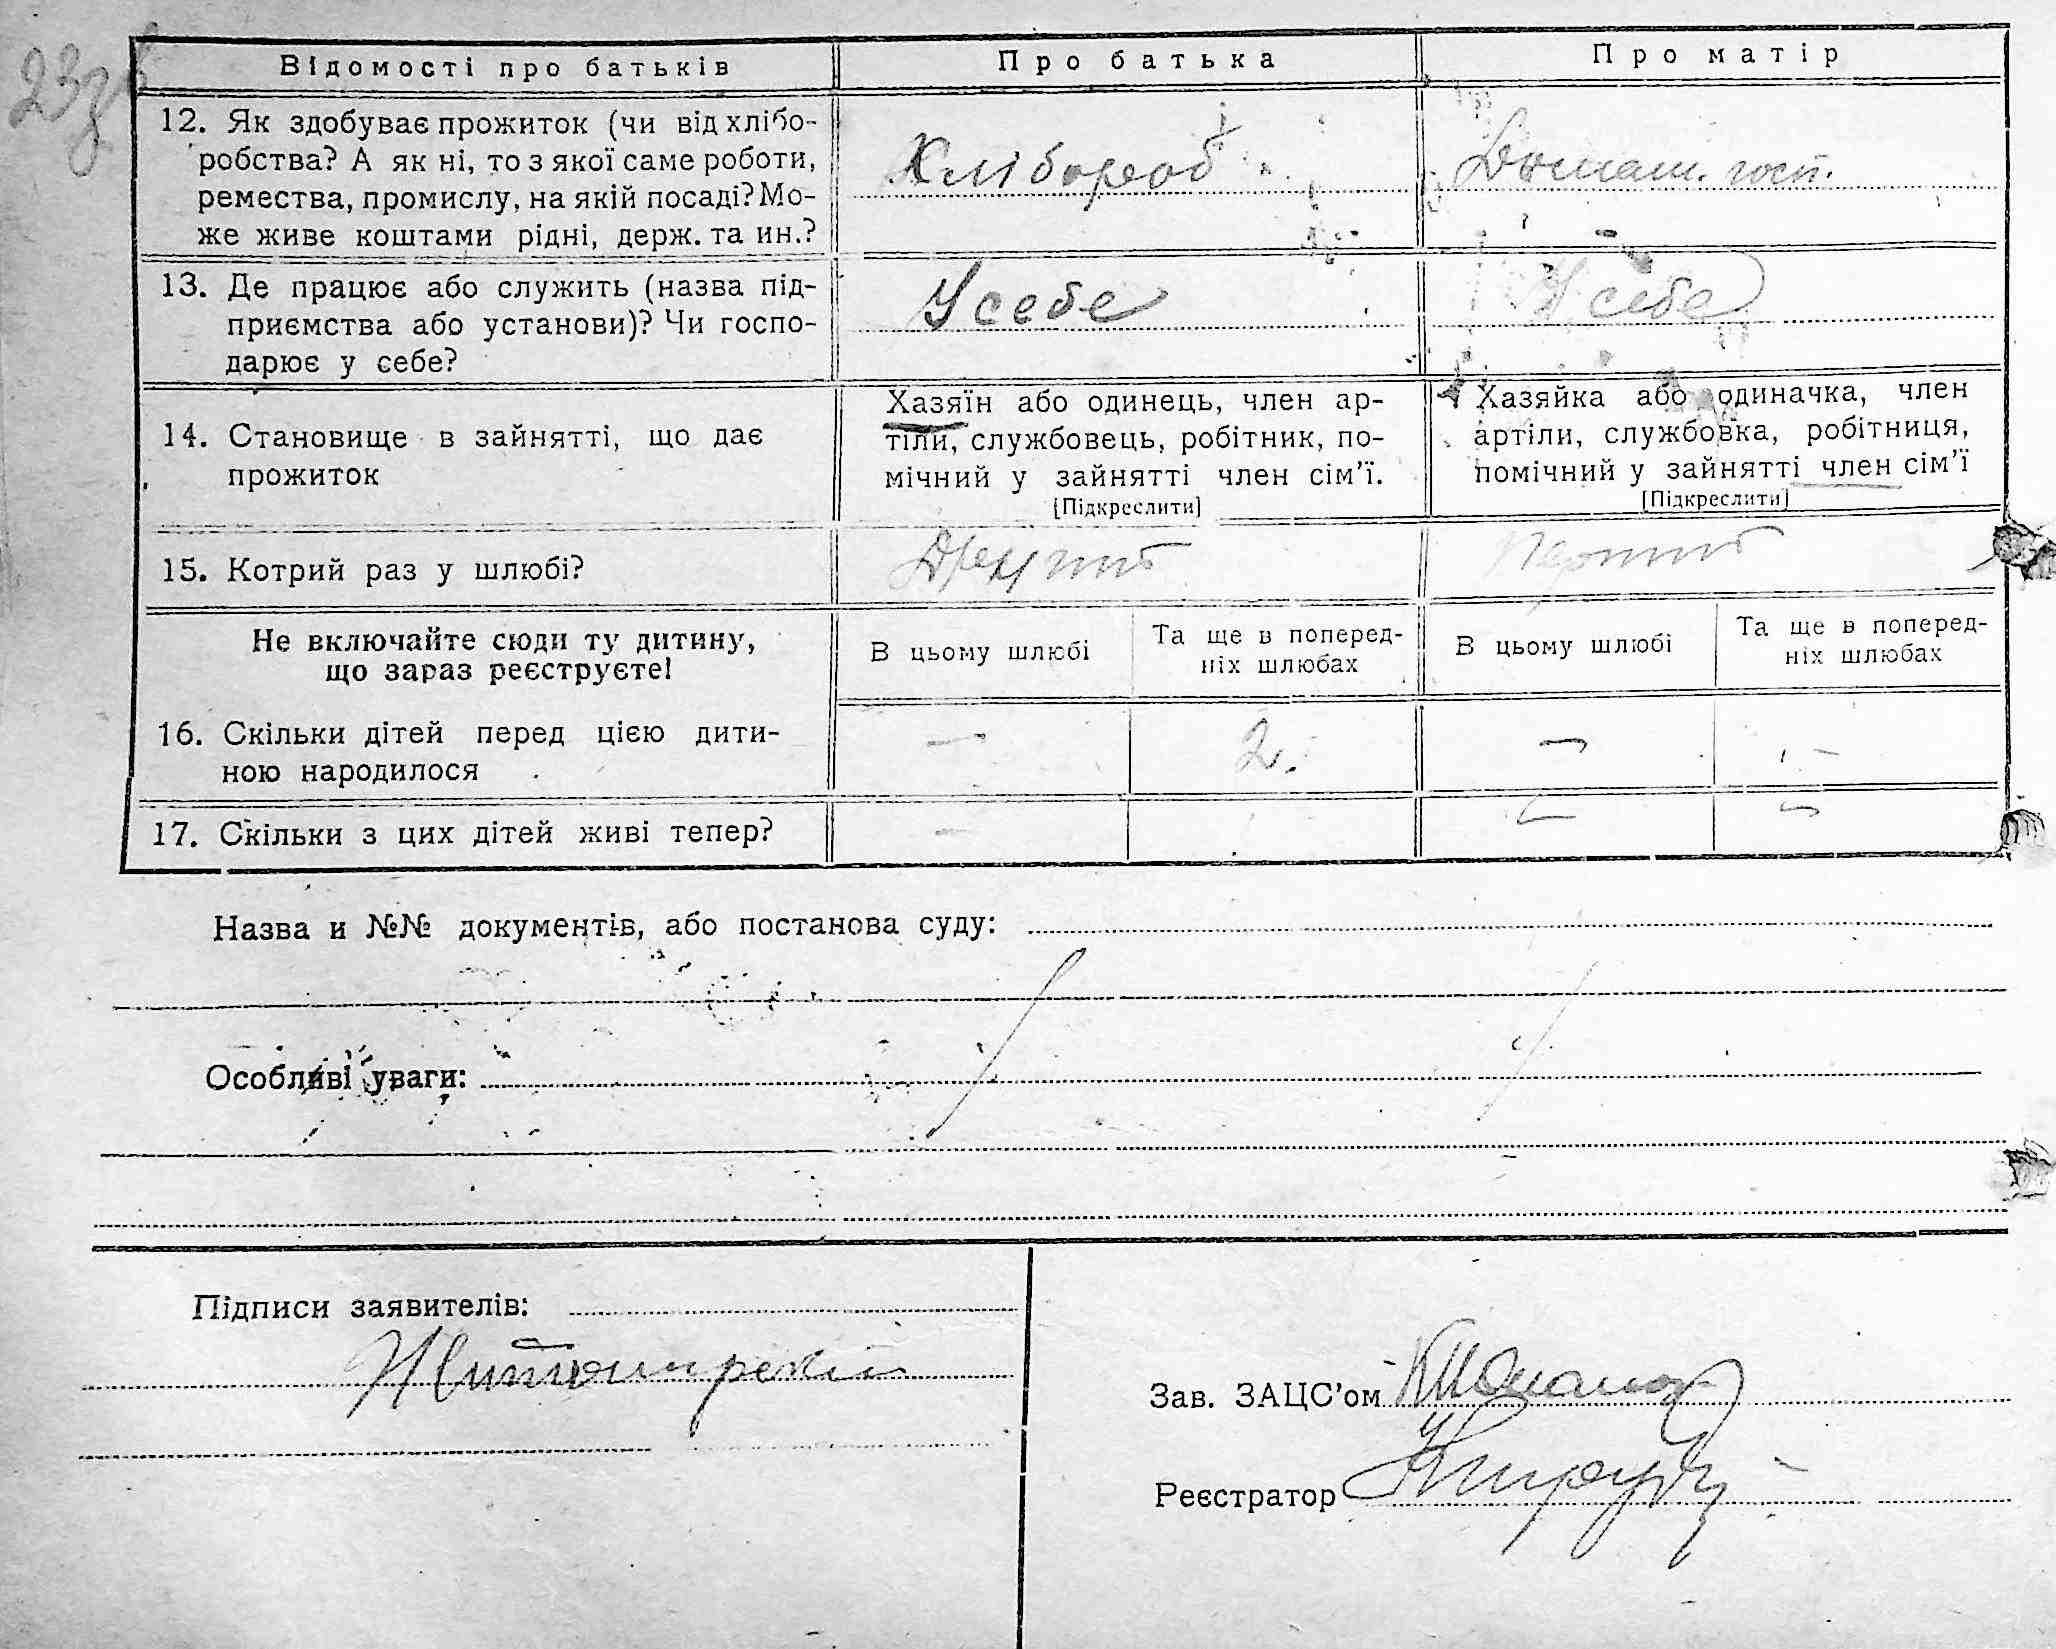 23 зв
Відомості про батьків
Про батька
Про матір
12. Як здобуває прожиток (чи від хлібо-
робства? А як ні, то з якої саме роботи,
ремества, промислу, на якій посаді? Мо-
же живе коштами рідні, держ. та ин.?
Хлібороб
Домаш. госп.
13. Де працює або служить (назва під-
приємства або установи)? Чи госпо-
дарює у себе?
У себе
У себе
14. Становище в зайнятті, що дає
прожиток
Хазяїн або одинець, член ар-
тіли, службовець, робітник, по-
мічний у зайнятті член сім'ї.
[Підкреслити]
Хазяйка або одиначка, член
артіли, службовка, робітниця,
помічний у зайнятті член сім'ї
[Підкреслити]
15. Котрий раз у шлюбі?
Другий
Перший
Не включайте сюди ту дитину,
що зараз реєструєте!
В цьому шлюбі
Та ще в поперед-
ніх шлюбах
В цьому шлюбі
Та ще в поперед-
ніх шлюбах
16. Скільки дітей перед цією дити-
ною народилося
— 2. — —
17. Скільки з цих дітей живі тепер?
— — —
Назва и №№ документів, або постанова суду:
Особливі уваги:
Підписи заявителів:
Житомирский
Зав. ЗАЦС'ом
Реєстратор